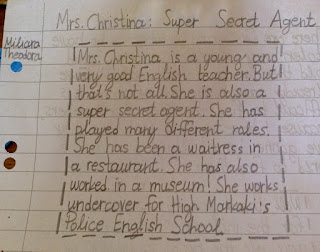 Mrs. Christina: Super Secret Agent
Miliara
Theodora
Mrs. Christina is a young and
very good English teacher. But
that's not all. She is also a
super secret agent. She has
played many different roles.
She has been a waitress in
a restaurant. She has also
worked in a museum! She works
undercover for High Markaki's
Police English School